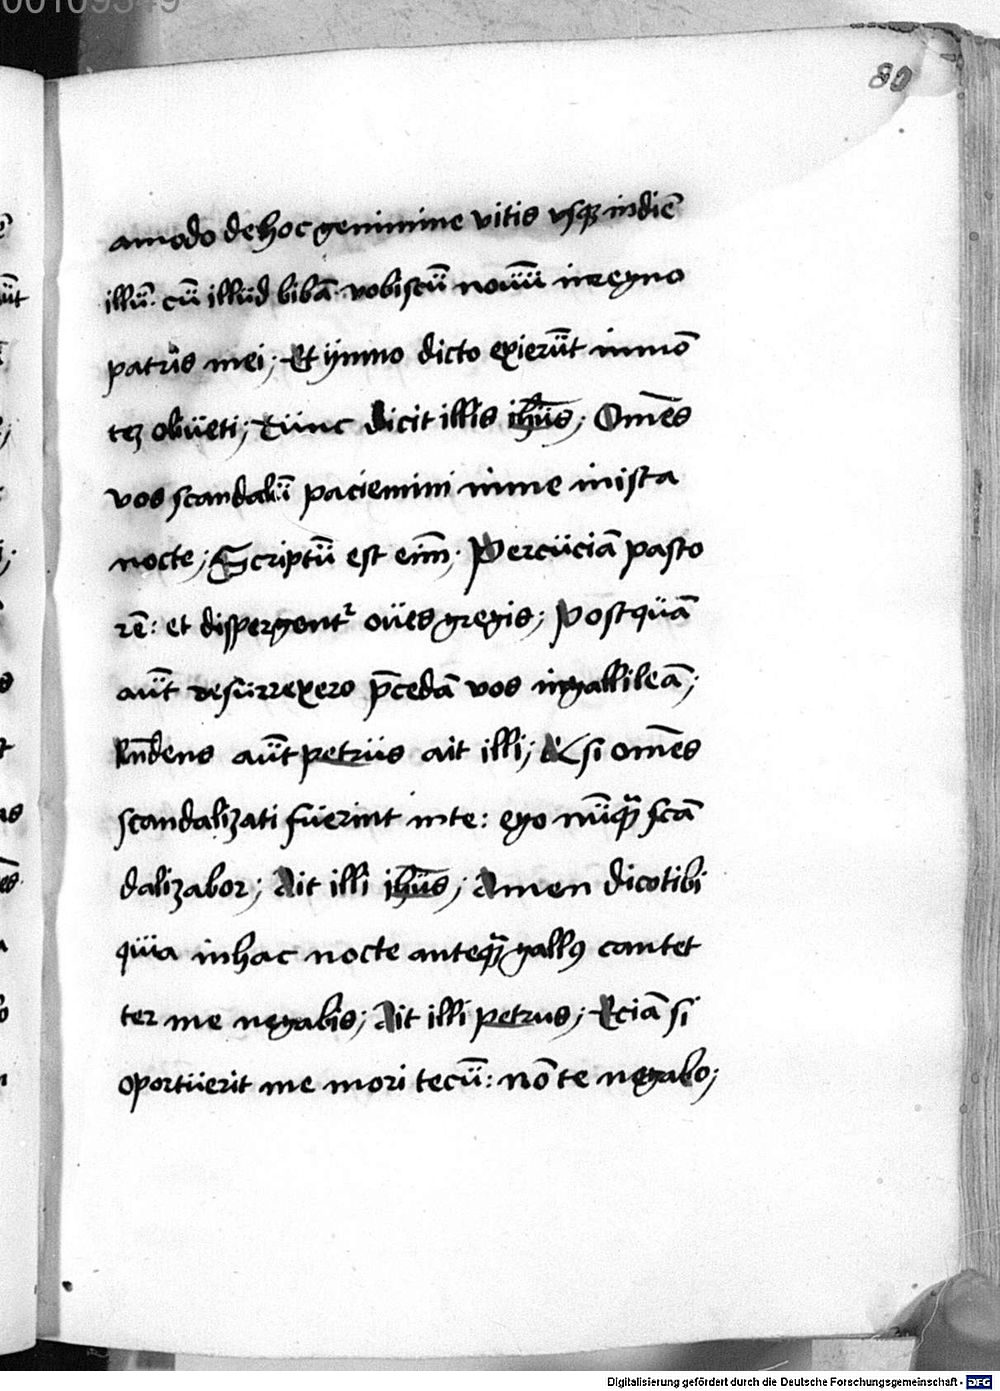 00109349
80
amodo de hoc genimine vitis vsqꝫ in diē
illū. cū illud bibā vobiscū nouū in regno
patris mei; Et ijmno dicto exierūt in mō
teꝫ oliueti; Tunc dicit illis ihūs; Om̄es
vos scandalū paciemini in me in ista
nocte; Scriptū est eīm. Percuciā pasto
rē: et dispergentᷣ oues gregis; Postquā
aūt resurrexero p̄cedā vos in gallileā;
Rn̄dens aūt petrus ait illi; Et si om̄es
scandalizati fuerint in te: ego nūqꝫ scā
dalizabor; Ait illi ihūs; Amen dico tibi
quia in hac nocte anteqꝫ gallꝰ cantet
ter me negabis; Ait illi petrus; Eciā si
oportuerit me mori tecū: nō te negabo;
Digitalisierung gefördert durch die Deutsche Forschungsgemeinschaft - DFG